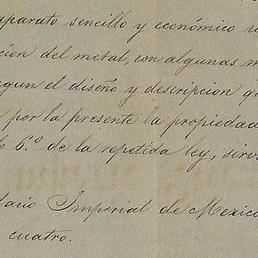 aparato sencillo y económico
cion del metal, con algunas
egun el diseño y descripcion
por la presente la propiedad
6.º de la repetida ley,
lacio Imperial de Mexico
cuatro.